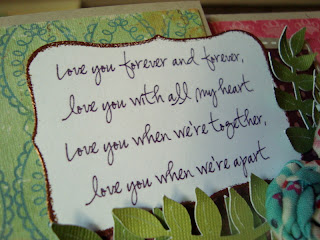 Love you forever and forever,
love you with all my heart
Love you when we're together,
love you when we're apart